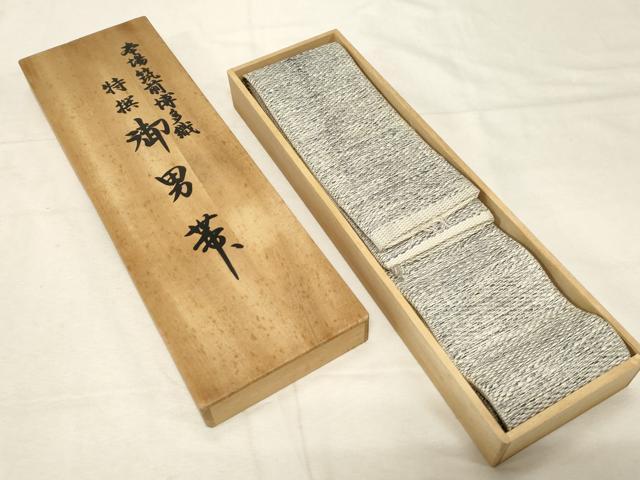 本場筑前博多織
特撰
御男帯